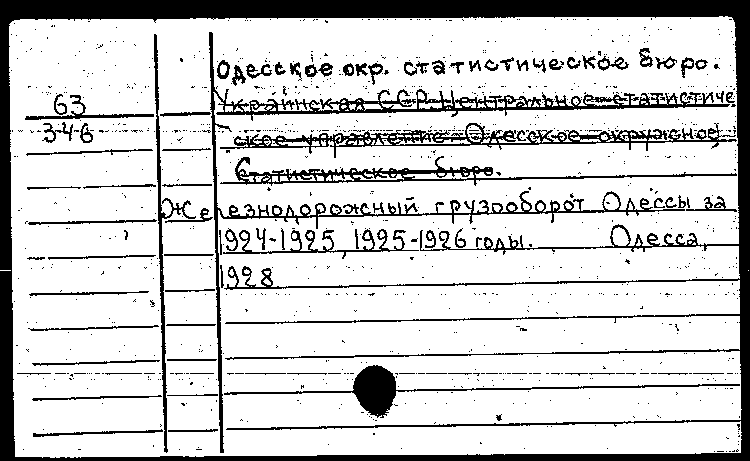 Одесское окр. статистическое бюро.
63
Украинская ССР Центральное статистиче
346
ское управление Одесское окружное
Статистическое бюро.
Железнодорожный грузооборот Одессы за
1924-1925, 1925-1926 годы. Одесса,
1928